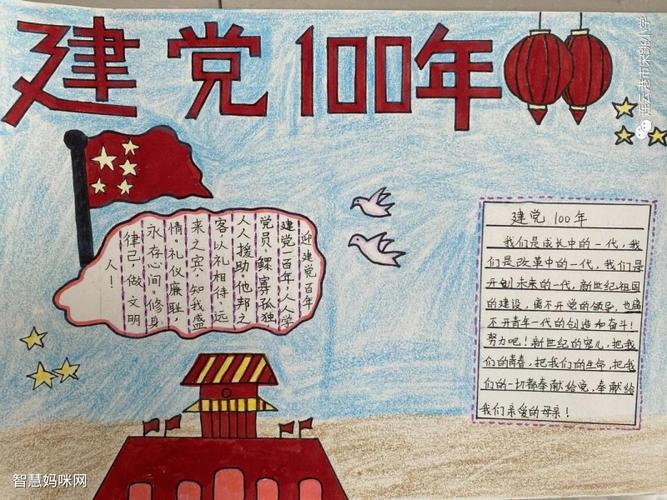 建党100年
迎建党百年
建党一百年，人人学
党员。鳏寡孤独
人人援助。他邦之
客以礼相待。远
来之宾，知我盛
情。礼仪廉耻，
永存心间。修身
律己，做文明
人！
建党100年
我们是成长中的一代，我
们是改革中的一代，我们是
开创未来的一代。新世纪祖国
的建设，离不开党的领导，也离
不开青年一代的创造和奋斗！
努力吧！新世纪的宠儿，把我
们的青春，把我们的生命，把我
们的一切都奉献给党，奉献给
我们亲爱的母亲！
智慧妈咪网